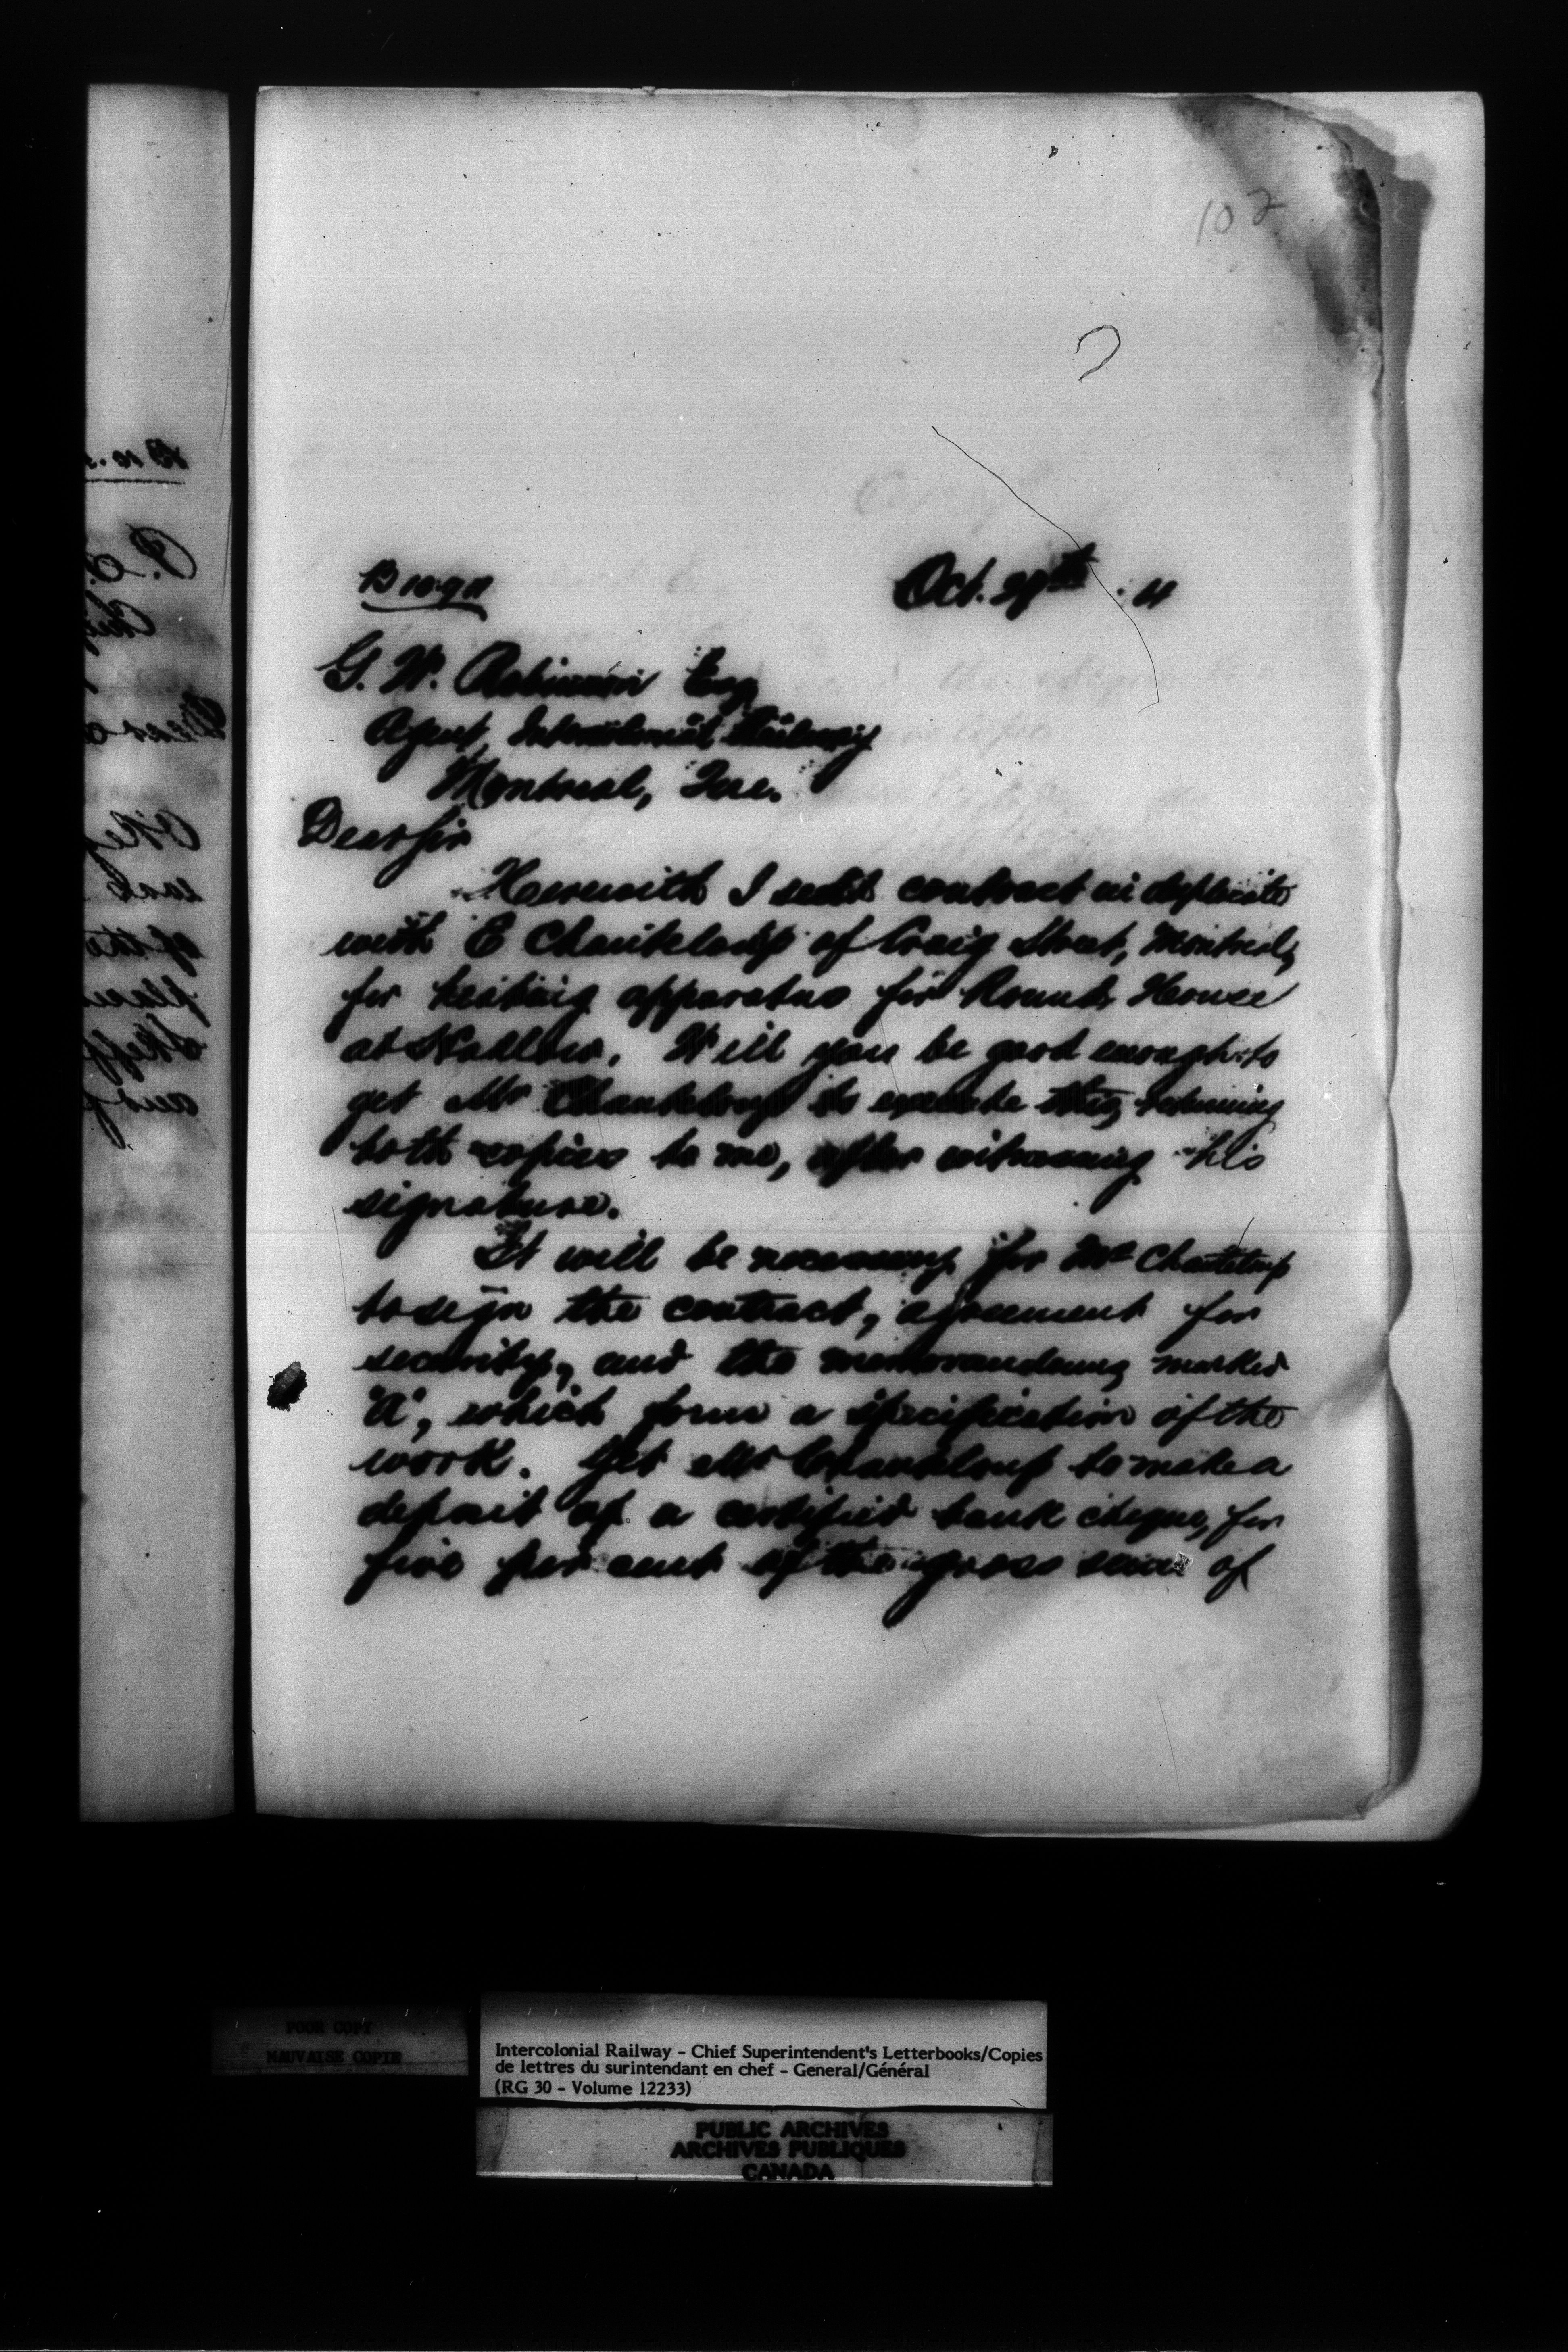 102
Oct. 29th
G. W. Robinson Esq
Agent, Intercolonial Railway
Montreal, Que.
Dear Sir
Herewith I send contract in duplicate
with E Chanteloup of Craig Street, Montreal,
for heating apparatus for Round House
at Will you be good enough to
get Mr Chanteloup to execute this, returning
both copies to me, after witnessing his
signature.
It will be necessary for Mr Chanteloup
to sign the contract, agreement for
security, and the memorandum marked
"A", which form a specification of the
work. Get Mr Chanteloup to make a
deposit of a certified bank cheque, for
five per cent of the gross sum of
POOR COPY
MAUVAISE COPIE
Intercolonial Railway - Chief Superintendent's Letterbooks/Copies
de lettres du surintendant en chef - General/Général
(RG 30 - Volume 12233)
PUBLIC ARCHIVES
ARCHIVES PUBLIQUES
CANADA